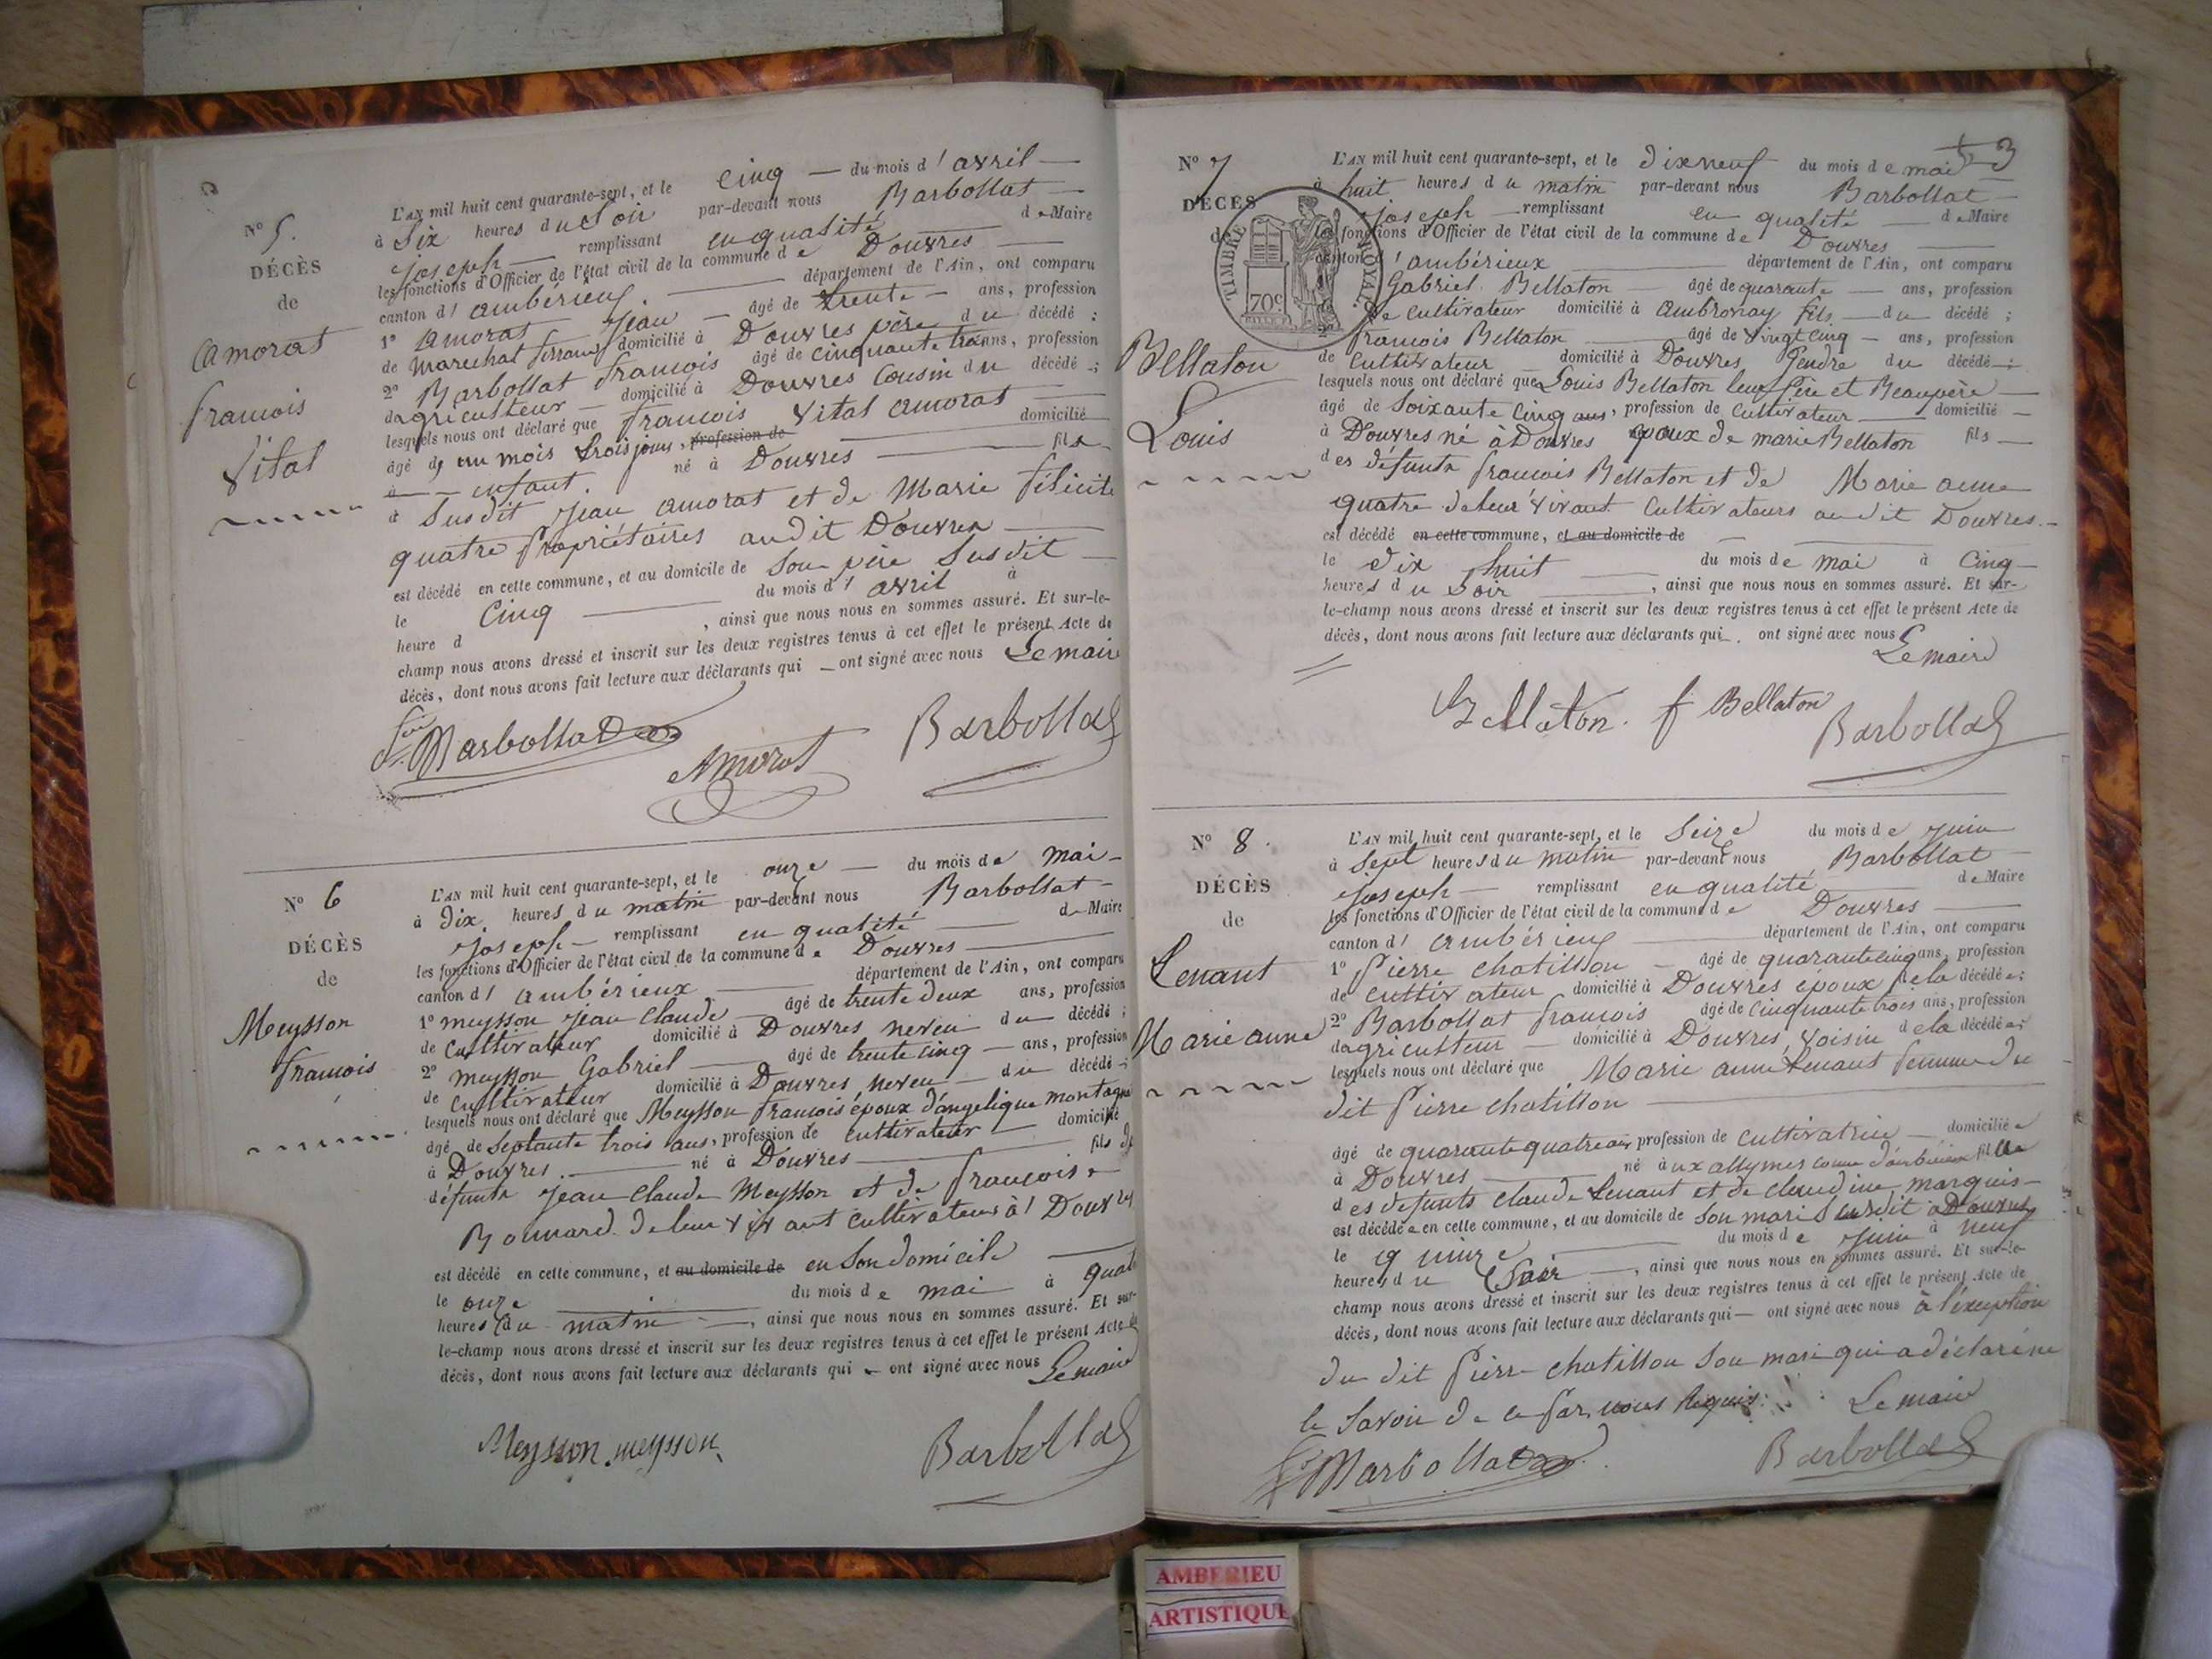 N° 5.
DÉCÈS
de
Amorat
francois
Vital
L'AN mil huit cent quarante-sept, et le cinq — du mois d'avril —
à Six heures du Soir par-devant nous Barbollat —
joseph — remplissant en qualité de Maire
les fonctions d'Officier de l'état civil de la commune de Douvres —
canton d'ambérieux. — département de l'Ain, ont comparu
1° Amorat Jean — âgé de trente — ans, profession
de Marechat ferrant domicilié à Douvres père du décédé ;
2° Barbollat francois âgé de cinquante trois ans, profession
dagriculteur — domicilié à Douvres Cousin du décédé ;
lesquels nous ont déclaré que francois Vital amorat —
âgé de un mois trois jours, profession de — domicilié
à — enfant. né à Douvres — fils
d Susdit Jean amorat et de Marie félicité
quatre Propriétaires audit Douvres —
est décédé en cette commune, et au domicile de Son père Susdit —
le Cinq — du mois d'avril à
heure d , ainsi que nous nous en sommes assuré. Et sur-le-
champ nous avons dressé et inscrit sur les deux registres tenus à cet effet le présent Acte de
décès, dont nous avons fait lecture aux déclarants qui — ont signé avec nous Le maire
Barbollat Amorat Barbollat
N° 6
DÉCÈS
de
Meysson
francois
L'AN mil huit cent quarante-sept, et le onze — du mois de mai —
à dix heures du matin par-devant nous Barbollat —
joseph — remplissant en qualité — de Maire
les fonctions d'Officier de l'état civil de la commune de Douvres —
canton d'ambérieux — département de l'Ain, ont comparu
1° meysson jean Claude — âgé de trente deux ans, profession
de Cultivateur domicilié à Douvres neveu du décédé ;
2° meysson Gabriel — âgé de trente cinq — ans, profession
de Cultivateur domicilié à Douvres, neveu — du décédé ;
lesquels nous ont déclaré que Meysson francois époux d'angelique montagne
âgé de Septante trois ans, profession de cultivateur — domicilié
à Douvres. — né à Douvres — fils de
défunts Jean Claude Meysson et de francoise
Bonnard de leur vivant Cultivateurs à Douvres
est décédé en cette commune, et au domicile de en Son domicile —
le onze — du mois de mai à quatre
heures du matin —, ainsi que nous nous en sommes assuré. Et sur-
le-champ nous avons dressé et inscrit sur les deux registres tenus à cet effet le présent Acte de
décès, dont nous avons fait lecture aux déclarants qui — ont signé avec nous Le maire
Meysson meysson Barbollat
53
N° 7
DÉCÈS
de
TIMBRE ROYAL
70c
Bellaton
Louis
L'AN mil huit cent quarante-sept, et le dixneuf du mois de mai
à huit heures du matin par-devant nous Barbollat —
joseph — remplissant en qualité — de Maire
les fonctions d'Officier de l'état civil de la commune de Douvres —
canton d'ambérieux — département de l'Ain, ont comparu
Gabriel Bellaton — âgé de quarante — ans, profession
de cultivateur domicilié à Ambronay fils — du décédé ;
2° francois Bellaton — âgé de vingt cinq — ans, profession
de Cultivateur domicilié à Douvres Gendre du décédé ;
lesquels nous ont déclaré que Louis Bellaton leur Père et Beaupère —
âgé de Soixante Cinq ans, profession de Cultivateur — domicilié —
à Douvres né à Douvres époux de marie Bellaton fils —
des défunts francois Bellaton et de Marie anne
quatre de leur vivant Cultivateurs au dit Douvres. —
est décédé en cette commune, et au domicile de —
le dix huit — du mois de mai à Cinq —
heures du Soir —, ainsi que nous nous en sommes assuré. Et sur-
le-champ nous avons dressé et inscrit sur les deux registres tenus à cet effet le présent Acte de
décès, dont nous avons fait lecture aux déclarants qui ont signé avec nous
Le maire
Bellaton. f Bellaton Barbollat
N° 8.
DÉCÈS
de
Lenant
Marie anne
L'AN mil huit cent quarante-sept, et le Seize du mois de juin
à Sept heures du matin par-devant nous Barbollat
joseph — remplissant en qualité — de Maire
les fonctions d'Officier de l'état civil de la commune de Douvres —
canton d'ambérieux — département de l'Ain, ont comparu
1° Pierre chatillon — âgé de quarante cinq ans, profession
de cultivateur domicilié à Douvres époux de la décédée ;
2° Barbollat francois âgé de cinquante trois ans, profession
dagriculteur — domicilié à Douvres, voisin de la décédée ;
lesquels nous ont déclaré que Marie anne Lenant femme du
dit Pierre chatillon —
âgé de quarante quatre ans, profession de cultivatrice — domiciliée
à Douvres — né aux allymes comne d'ambérieux fille
des défunts Claude Lenant et de Claudine marquis —
est décédée en cette commune, et au domicile de Son mari Susdit à Douvres
le quinze — du mois de juin à neuf
heures du Soir —, ainsi que nous nous en sommes assuré. Et sur-le-
champ nous avons dressé et inscrit sur les deux registres tenus à cet effet le présent Acte de
décès, dont nous avons fait lecture aux déclarants qui — ont signé avec nous à l'exception
du dit Pierre chatillon Son mari qui a déclaré ne
le Savoir de ce par nous Requis. Le maire
Barbollat Barbollat
AMBERIEU
ARTISTIQUE